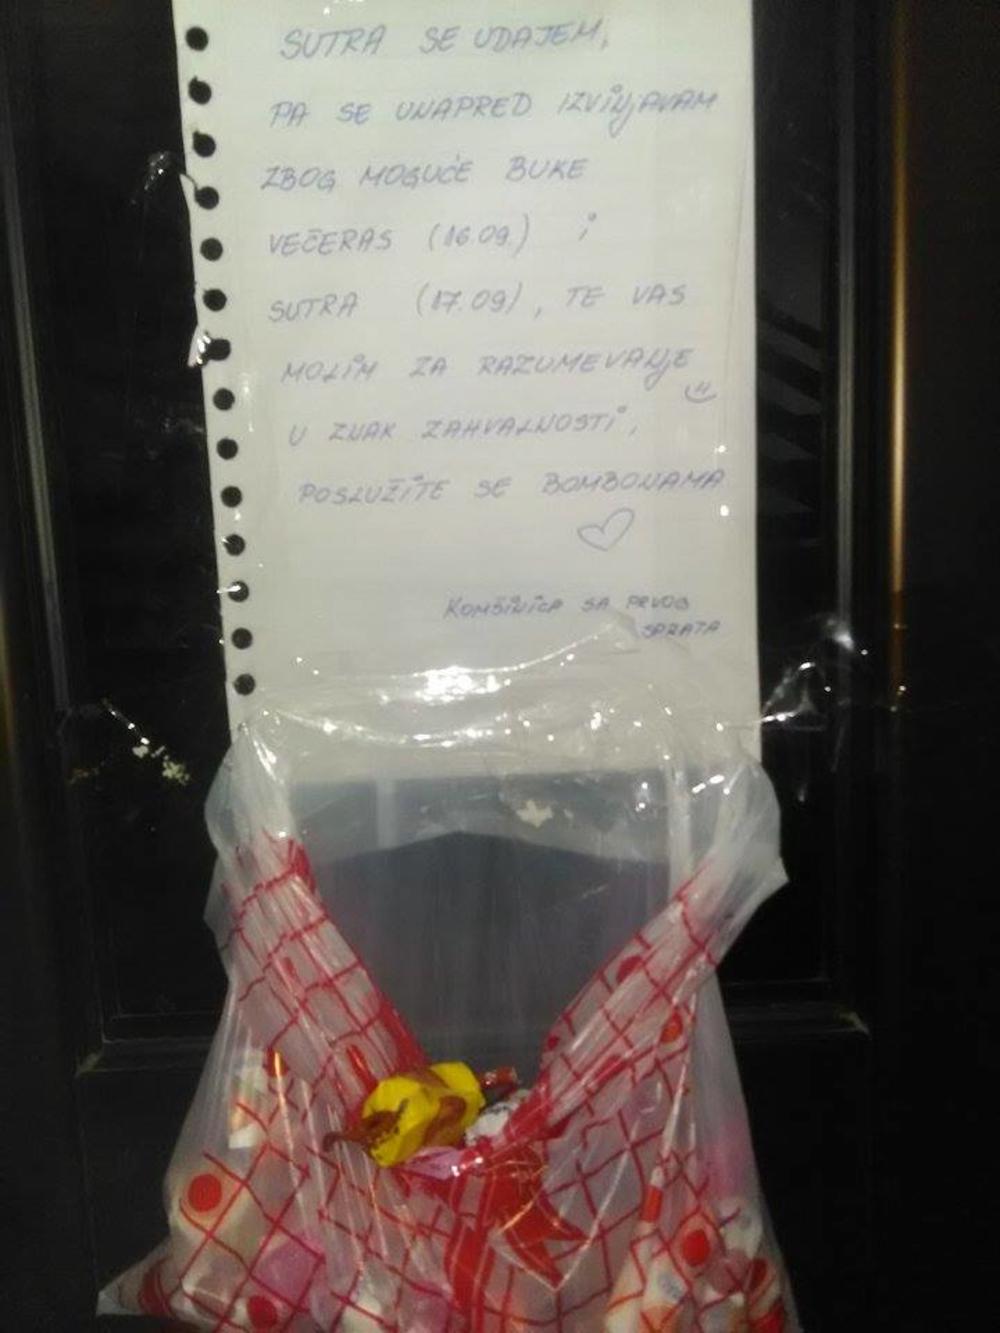 SUTRA SE UDAJEM,
PA SE UNAPRED IZVINJAVAM
ZBOG MOGUĆE BUKE
VEČERAS (16.09.) i
SUTRA (17.09), TE VAS
MOLIM ZA RAZUMEVANJE
U ZNAK ZAHVALNOSTI,
POSLUŽITE SE BOMBONAMA
KOMŠINICA SA PRVOG
SPRATA